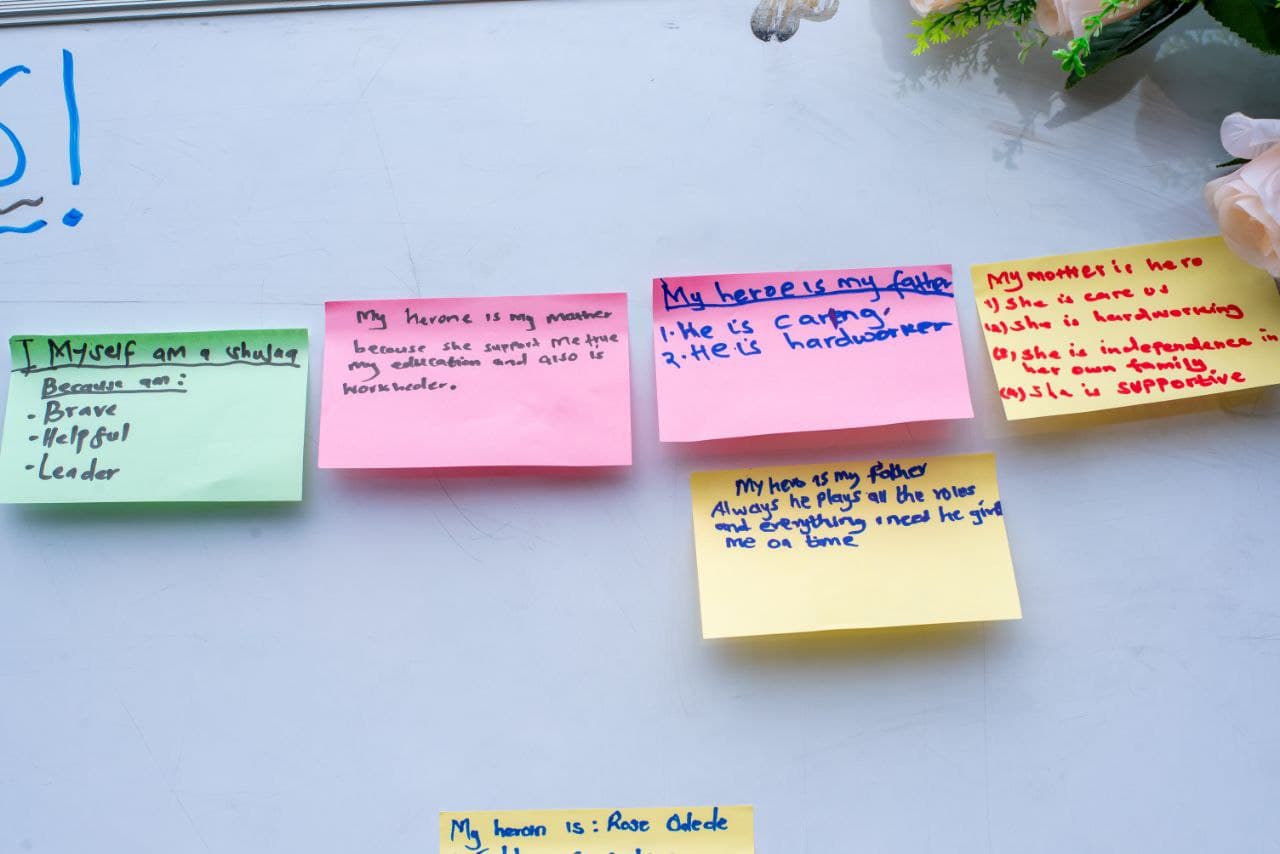 S!
I Myself am a shujaa
Because am:
- Brave
- Helpful
- Leader
My herone is my mother
because she support me true
my education and also is
workheder.
My heroe is my father
1. He is caring,
2. He is hardworker
My mother is hero
1) She is care us
(2) She is hardworking
(3) She is independence in
her own family
(4) She is supportive
My hero is my father
Always he plays all the roles
and everything i need he give
me on time
My heroin is: Rose Odede